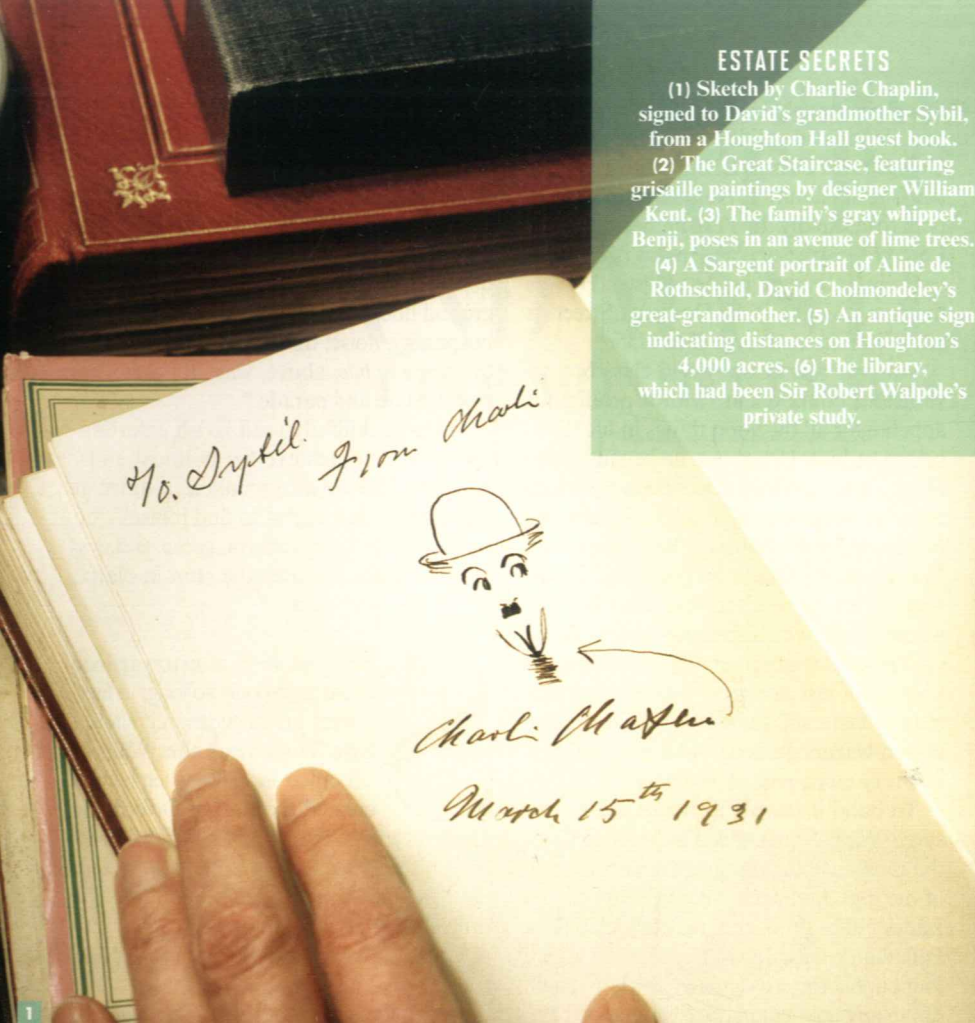 ESTATE SECRETS
(1) Sketch by Charlie Chaplin,
signed to David's grandmother Sybil,
from a Houghton Hall guest book.
(2) The Great Staircase, featuring
grisaille paintings by designer William
Kent. (3) The family's gray whippet,
Benji, poses in an avenue of lime trees.
(4) A Sargent portrait of Aline de
Rothschild, David Cholmondeley's
great-grandmother. (5) An antique sign
indicating distances on Houghton's
4,000 acres. (6) The library,
which had been Sir Robert Walpole's
private study.
To. Sybil. From Charlie
Charlie Chaplin
March 15th 1931
1